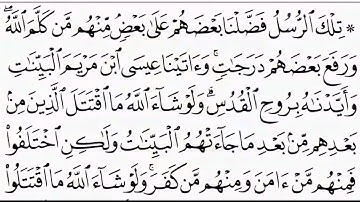 * تِلۡكَ ٱلرُّسُلُ فَضَّلۡنَا بَعۡضَهُمۡ عَلَىٰ بَعۡضٖۘ مِّنۡهُم مَّن كَلَّمَ ٱللَّهُۖ
وَرَفَعَ بَعۡضَهُمۡ دَرَجَٰتٖۚ وَءَاتَيۡنَا عِيسَى ٱبۡنَ مَرۡيَمَ ٱلۡبَيِّنَٰتِ
وَأَيَّدۡنَٰهُ بِرُوحِ ٱلۡقُدُسِۗ وَلَوۡ شَآءَ ٱللَّهُ مَا ٱقۡتَتَلَ ٱلَّذِينَ مِنۢ
بَعۡدِهِم مِّنۢ بَعۡدِ مَا جَآءَتۡهُمُ ٱلۡبَيِّنَٰتُ وَلَٰكِنِ ٱخۡتَلَفُواْ
فَمِنۡهُم مَّنۡ ءَامَنَ وَمِنۡهُم مَّن كَفَرَۚ وَلَوۡ شَآءَ ٱللَّهُ مَا ٱقۡتَتَلُواْ